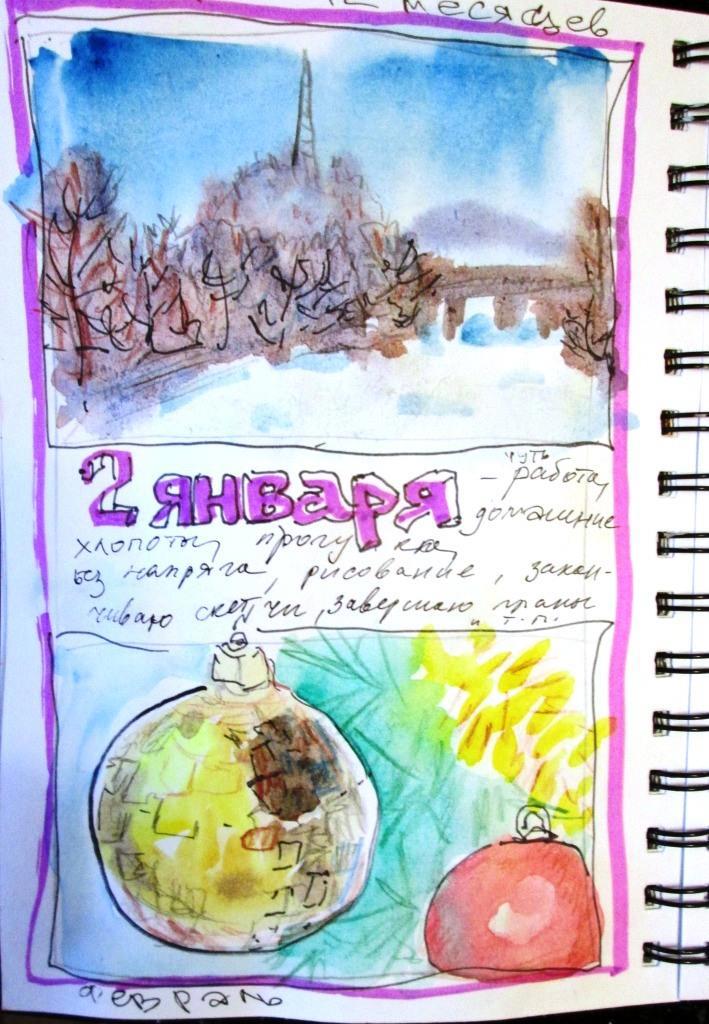 12 месяцев
2 января - чуть работы,
домашние
хлопоты, прогулка,
без напряга, рисование, закан-
чиваю скетчи, завершаю планы
и т.п.
февраль